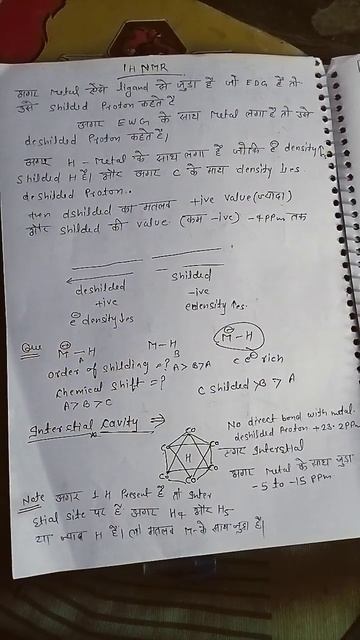 1H NMR
अगर Metal ऐसे ligand से जुड़ा है जो EDG है तो
उसे shilded Proton कहते हैं
अगर EWG के साथ Metal लगा है तो उसे
deshilded Proton कहते हैं।
अगर H - Metal के साथ लगा है जोकि ē density↑
shilded H है। और अगर C के साथ density ↓es.
deshilded Proton..
then dshilded का मतलब +ive value (ज्यादा)
और shilded की value (कम -ive) -4 PPm तक
deshilded
+ive
ē density ↓es
shilded
-ive
e density ↑es.
Que M⊕-H A
M-H B
M⊖-H
C e⊖ rich
order of shilding = ? A > B > A
chemical shift = ?
A > B > C
C shilded > B > A
Interstial cavity ⇒
No direct bond with metal
deshilded Proton +23.2 PPm
अगर Interstial
Co
H
अगर Metal के साथ जुड़ा
-5 to -15 PPm
Note अगर 1 H Present है तो Inter
stial site पर है अगर H4 और H5
या ज्यादा H हैं। तो मतलब M- के साथ जुड़ा है।